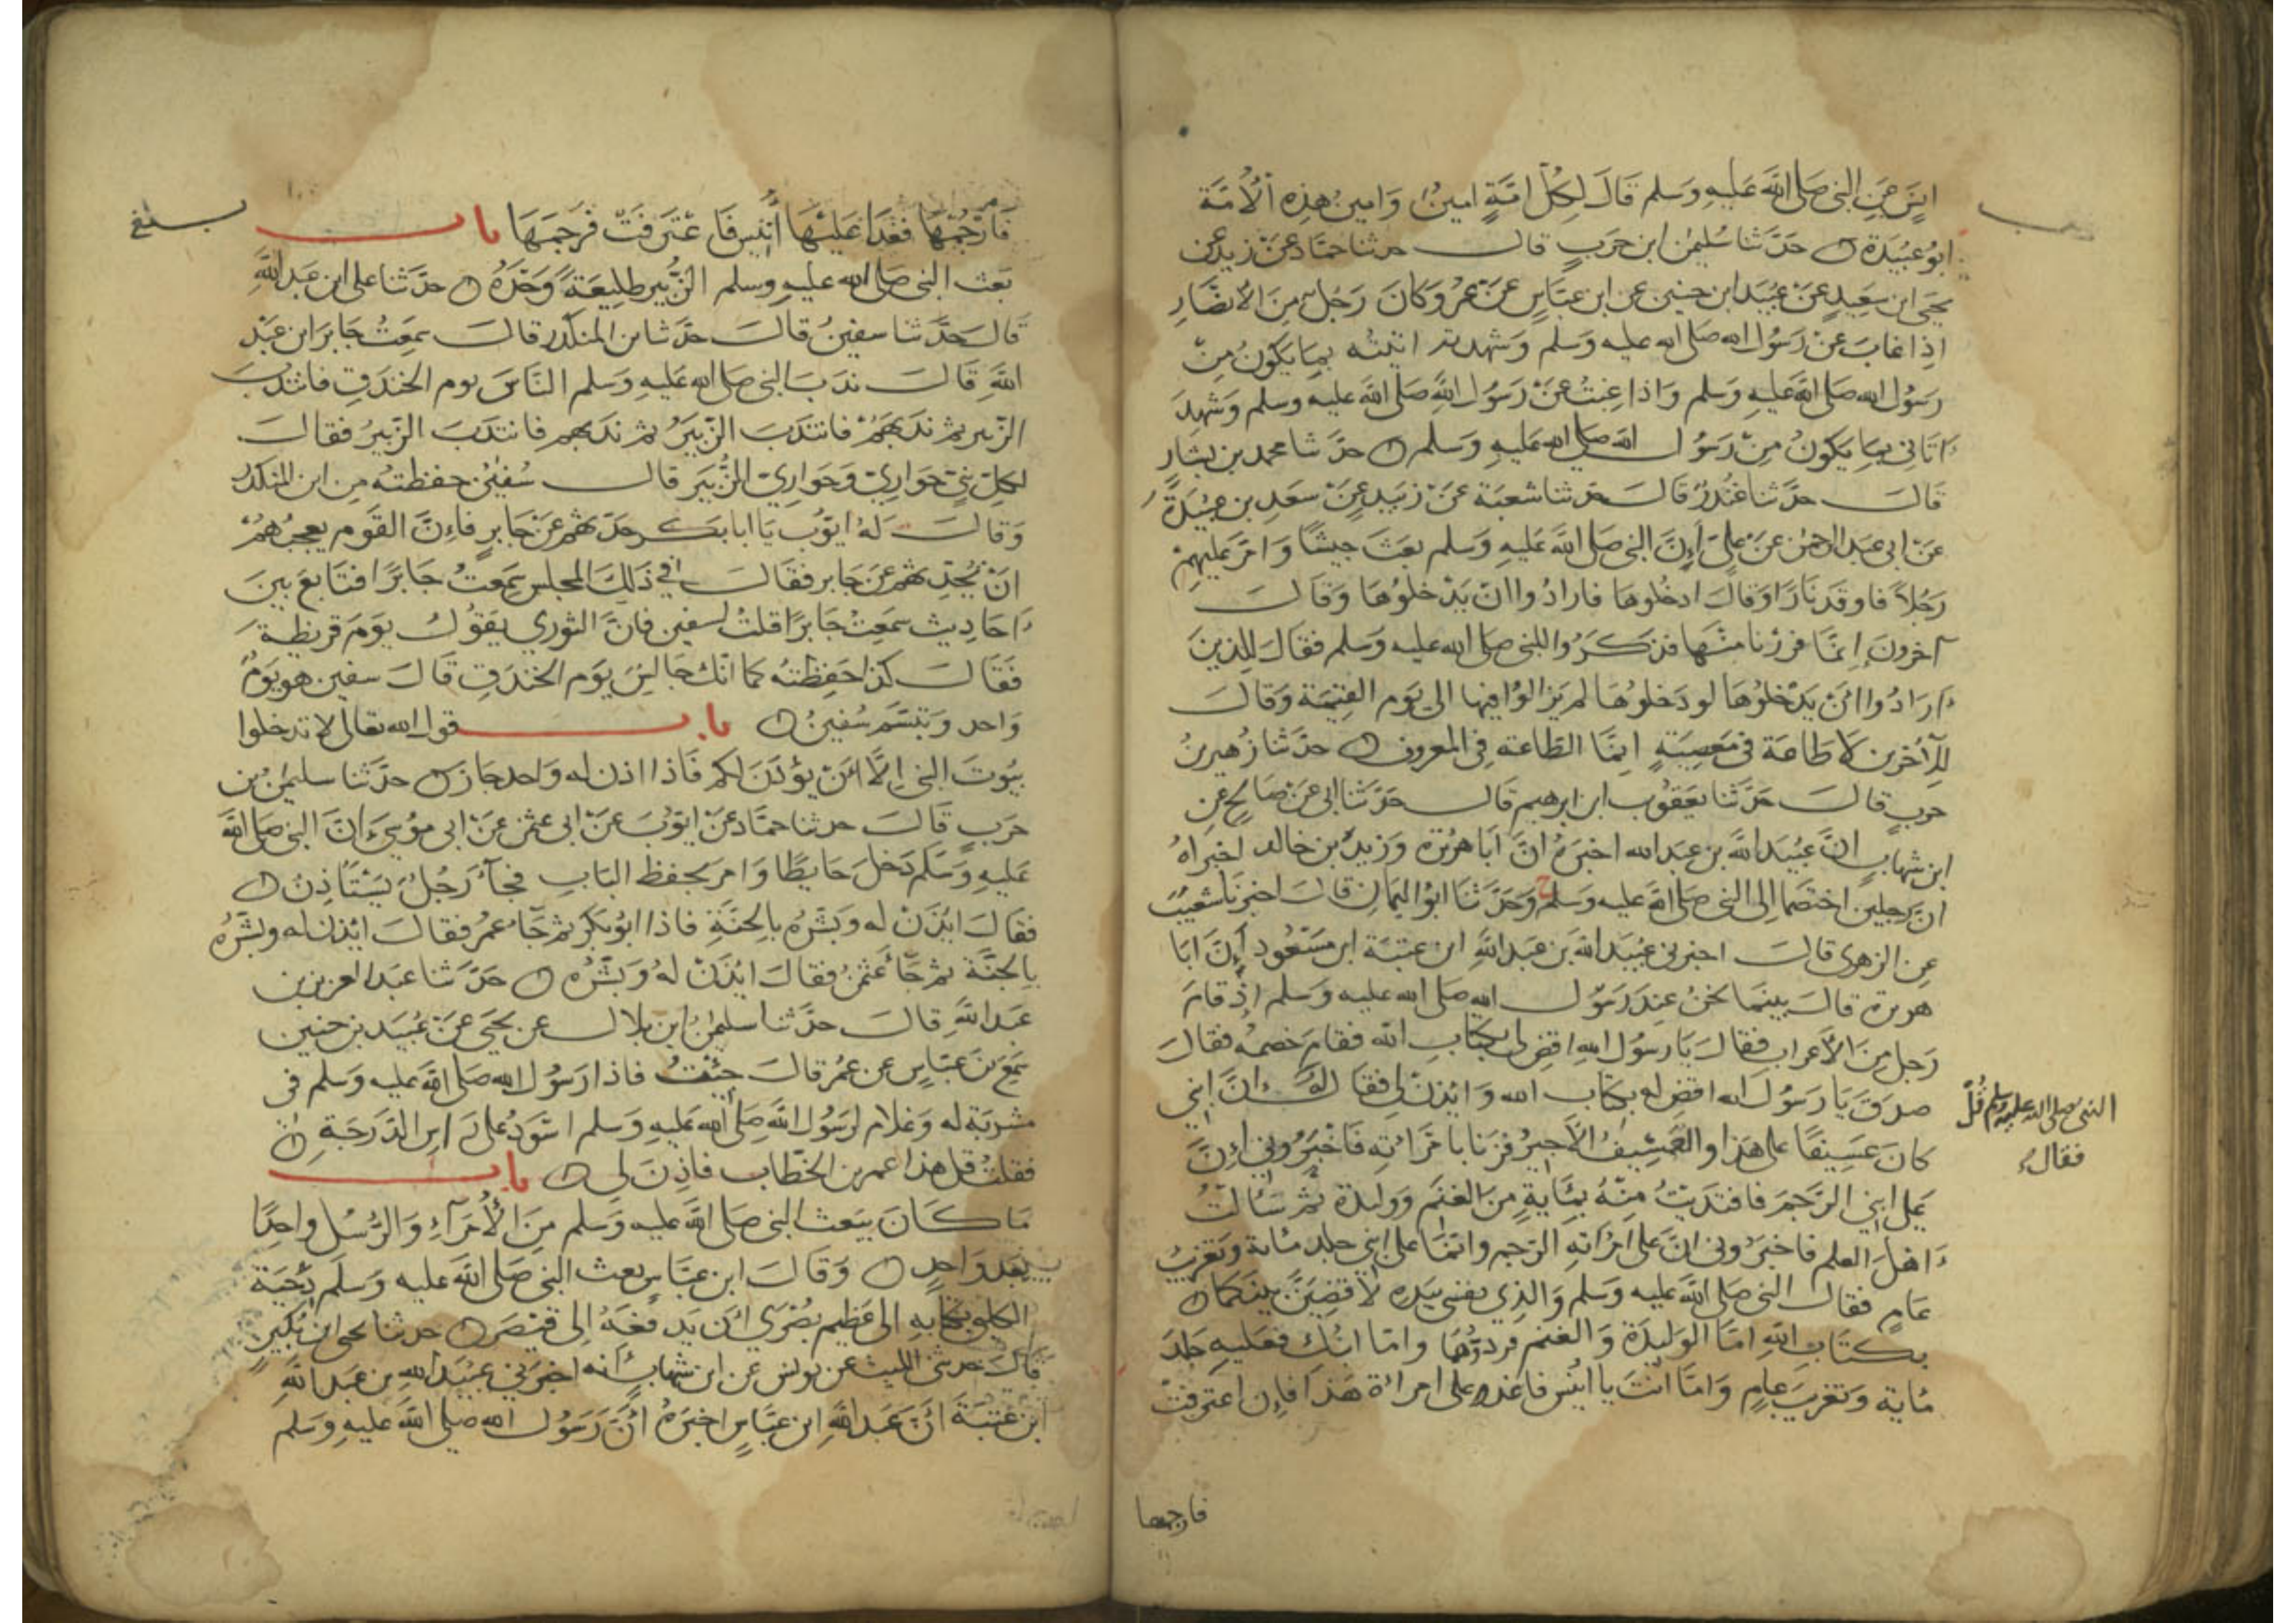 انس عن النبي صلى الله عليه وسلم قال لكل امة امين وامين هذه الأمة
ابو عبيدة حدثنا سليمن ابن حرب قال حدثنا حماد عن زيد عن
يحيى ابن سعيد عن عبيد ابن حنين عن ابن عباس عن عمر وكان رجل من الانصار
اذا غاب عن رسول الله صلى الله عليه وسلم وشهدته اتيته بما يكون من
رسول الله صلى الله عليه وسلم واذا غبت عن رسول الله صلى الله عليه وسلم وشهد
اتاني بما يكون من رسول الله صلى الله عليه وسلم حدثنا محمد بن بشار
قال حدثنا غندر قال حدثنا شعبة عن زبيد عن سعد بن عبيدة
عن ابي عبد الرحمن عن علي أن النبي صلى الله عليه وسلم بعث جيشا وامر عليهم
رجلا فاوقد نارا وقال ادخلوها فارادوا ان يدخلوها وقال
آخرون إنما فررنا منها فذكروا للنبي صلى الله عليه وسلم فقال للذين
ارادوا أن يدخلوها لو دخلوها لم يزالوا فيها الى يوم القيمة وقال
للآخرين لا طاعة في معصية إنما الطاعة في المعروف حدثنا زهير بن
حرب قال حدثنا يعقوب ابن ابرهيم قال حدثنا ابي عن صالح عن
ابن شهاب ان عبيد الله بن عبد الله اخبره ان أبا هريرة وزيد بن خالد اخبراه
ان رجلين اختصما إلى النبي صلى الله عليه وسلم ح وحدثنا ابو اليمان قال اخبرنا شعيب
عن الزهري قال اخبرني عبيد الله بن عبد الله ابن عتبة ابن مسعود أن ابا
هريرة قال بينما نحن عند رسول الله صلى الله عليه وسلم إذ قام
رجل من الأعراب فقال يا رسول الله اقض لي بكتاب الله فقام خصمه فقال
صدق يا رسول الله اقض له بكتاب الله وائذن لي فقال ان ابني
النبي صلى الله عليه وسلم قل
فقال
كان عسيفا على هذا والعسيف الأجير فزنا بامرأته فاخبروني أن
على ابني الرجم فافتديت منه بمئاية من الغنم ووليدة ثم سألت
اهل العلم فاخبروني ان على امرأته الرجم وانما على ابني جلد مئاية وتغريب
عام فقال النبي صلى الله عليه وسلم والذي نفسي بيده لأقضين بينكما
بكتاب الله اما الوليدة والغنم فردوها واما ابنك فعليه جلد
مئاية وتغريب عام واما انت يا انيس فاغد على امرأة هذا فإن اعترفت
فارجمها
فارجمها فغدا عليها أنيس فاعترفت فرجمها باب
بلغ
بعث النبي صلى الله عليه وسلم الزبير طليعة وحده حدثنا علي ابن عبد الله
قال حدثنا سفين قال حدثنا بن المنكدر قال سمعت جابر ابن عبد
الله قال ندب النبي صلى الله عليه وسلم الناس يوم الخندق فانتدب
الزبير ثم ندبهم فانتدب الزبير ثم ندبهم فانتدب الزبير فقال
لكل نبي حواري وحواري الزبير قال سفين حفظته من ابن المنكدر
وقال له ايوب يا ابا بكر حدثهم عن جابر فإن القوم يعجبهم
ان تحدثهم عن جابر فقال في ذلك المجلس سمعت جابرا فتابع بين
احاديث سمعت جابرا قلت لسفين فان الثوري يقول يوم قريظة
فقال كذا حفظته كما انك جالس يوم الخندق قال سفين هو يوم
واحد وتبسم سفين باب قول الله تعالى لا تدخلوا
بيوت النبي إلا أن يؤذن لكم فاذا اذن له واحد جاز حدثنا سليمن بن
حرب قال حدثنا حماد عن ايوب عن ابي عثمن عن ابي موسى ان النبي صلى الله
عليه وسلم دخل حايطا وامر بحفظ الباب فجاء رجل يستأذن
فقال ائذن له وبشره بالجنة فاذا ابو بكر ثم جاء عمر فقال ائذن له وبشره
بالجنة ثم جاء عثمن فقال ائذن له وبشره حدثنا عبد العزيز بن
عبد الله قال حدثنا سليمن ابن بلال عن يحيى عن عبيد بن حنين
سمع بن عباس عن عمر قال جئت فاذا رسول الله صلى الله عليه وسلم في
مشربة له وغلام لرسول الله صلى الله عليه وسلم اسود على راس الدرجة
فقلت قل هذا عمر بن الخطاب فاذن لي باب
ما كان يبعث النبي صلى الله عليه وسلم من الأمرآء والرسل واحدا
بعد واحد وقال ابن عباس بعث النبي صلى الله عليه وسلم دحية
الكلبي بكتابه الى عظيم بصرى أن يدفعه إلى قيصر حدثنا يحيى ابن بكير
قال حدثني الليث عن يونس عن ابن شهاب أنه اخبرني عبيد الله بن عبد الله
ابن عتبة أن عبد الله ابن عباس اخبره أن رسول الله صلى الله عليه وسلم